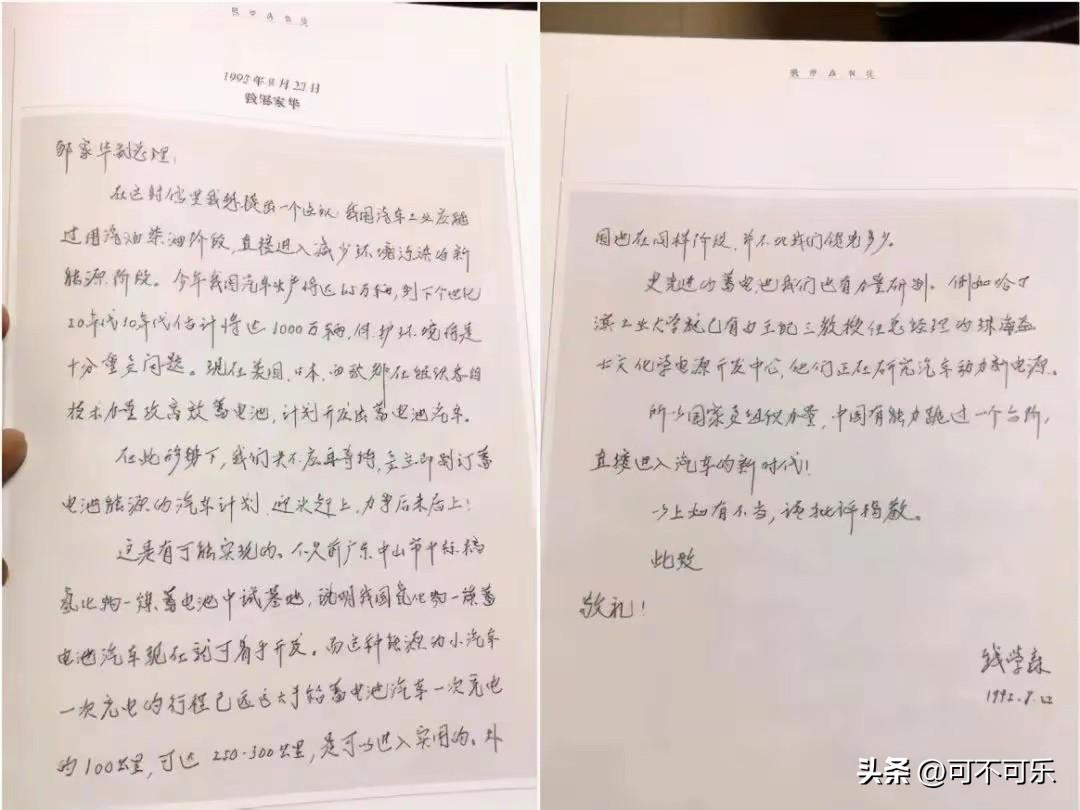 1992年8月22日
致邹家华
邹家华副总理:
在这封信里我想提出一个建议:我国汽车工业应跳
过用汽油柴油阶段,直接进入减少环境污染的新
能源阶段。今年我国汽车生产将达
10年代估计将达1000万辆,保护环境将是
十分重要问题。现在美国、日本、西欧都在组织各自
技术力量攻高效蓄电池,计划开发出蓄电池汽车。
在此形势下,我们决不应再等待,要立即制订蓄
电池能源的汽车计划,迎头赶上,力争后来居上!
这是有可能实现的。不久前广东中山市中标搞
氢化物—镍蓄电池中试基地,说明我国氢化物—镍蓄
电池汽车现在就可着手开发。而这种能源为小汽车
一次充电的行程已远远大于铅蓄电池汽车一次充电
的100公里,可达250-300公里,是可以进入实用的。外
国也在同样阶段,并不比我们领先多少。
更先进的蓄电池我们也有力量研制。例如哈尔
滨工业大学就已有由王纪三教授任总经理的珠海益
士文化学电源开发中心,他们正在研究汽车动力新电源。
所以国家要组织力量,中国有能力跳过一个台阶,
直接进入汽车的新时代!
以上如有不当,请批评指教。
此致
敬礼!
钱学森
1992.8.22
头条 @可不可乐